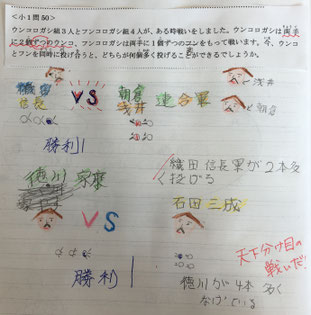 <小1問50>
ウンコロガシ組3人とフンコロガシ組4人が、ある時戦いをしました。ウンコロガシは両手
に2個ずつのウンコ、フンコロガシは両手に1個ずつのフンをもって戦います。今、ウンコ
とフンを同時に投げ合うと、どちらが何個多く投げることができるでしょうか。
織田
信長 VS 朝倉
浅井 連合軍
浅井
朝倉
勝利!
織田信長軍が2本多
く投げる
徳川家康
VS
石田三成
天下分け目の
戦いだ!
勝利!
徳川が4本多く
なげている